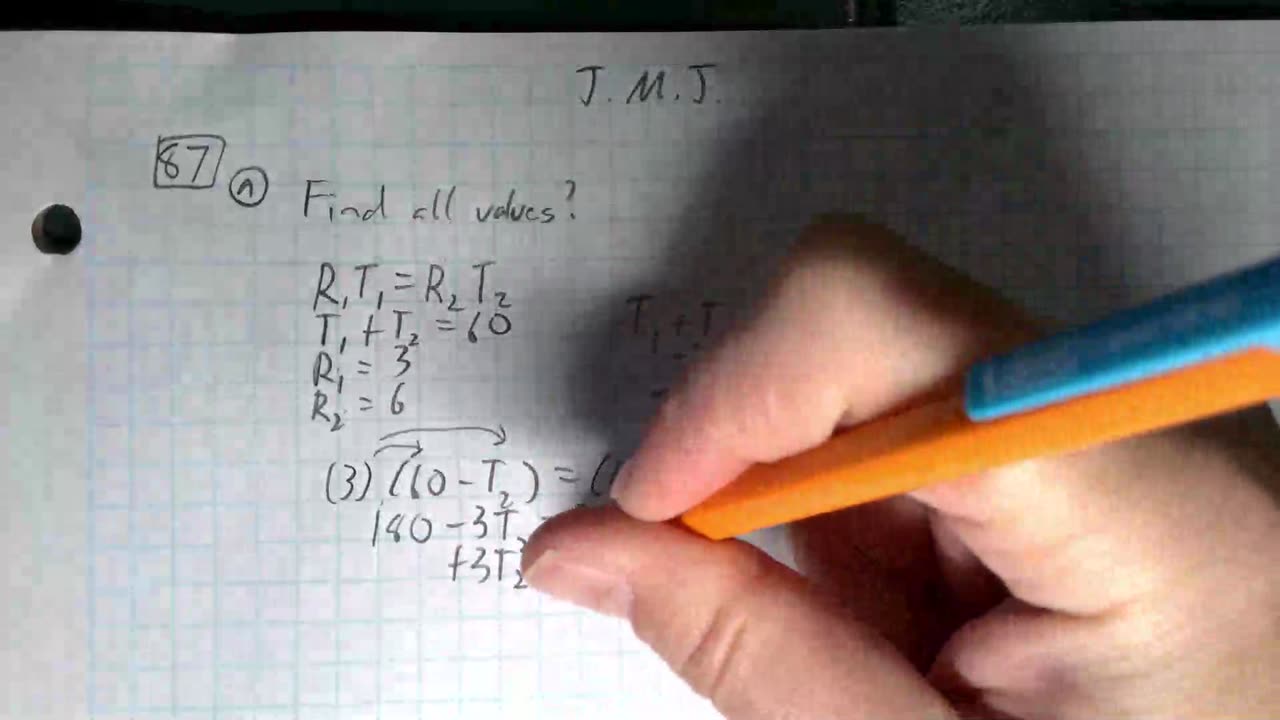 J.M.J.
87 a Find all values?
R₁T₁ = R₂T₂
T₁ + T₂ = 60
T₁ + T
R₁ = 3
R₂ = 6
(3)(60 - T₂) = (
180 - 3T
+3T₂